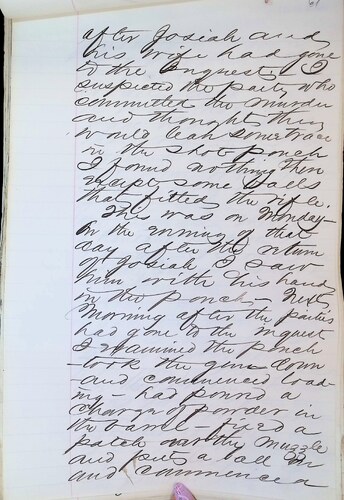 after Josiah and
his wife had gone
to the inquest - I
suspected the party who
committed the murder
and thought they
would leave some trace
in the shot pouch
I found nothing there
except some balls
that fitted the rifle.
This was on Monday -
In the evening of that
day after the return
of Josiah I saw
him with his hand
in the pouch - Next
Morning after the parties
had gone to the inquest
I examined the pouch
- took the gun down
and commenced load-
ing - had poured a
charge of powder in
the barrel - fixed a
patch over the muzzle
and put a ball on
and commenced